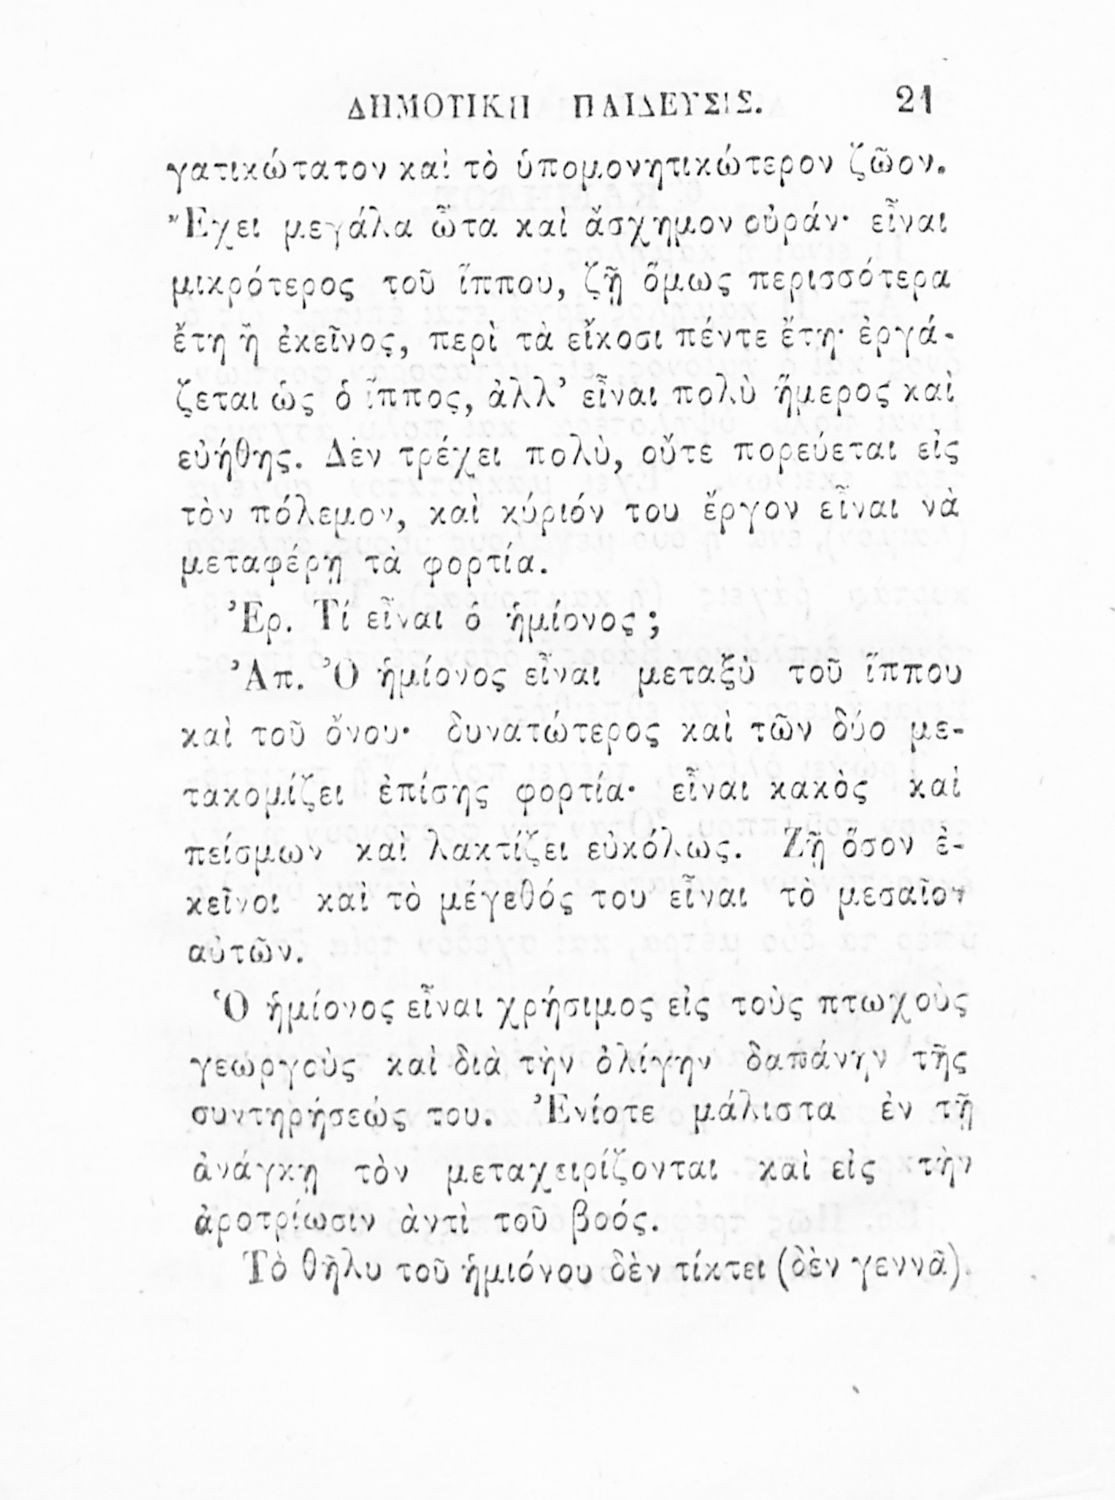 ΔΗΜΟΤΙΚΗ ΠΑΙΔΕΥΣΙΣ. 21
γατικώτατον καὶ τὸ ὑπομονητικώτερον ζῶον.
Ἔχει μεγάλα ὦτα καὶ ἄσχημον οὐράν· εἶναι
μικρότερος τοῦ ἵππου, ζῇ ὅμως περισσότερα
ἔτη ἢ ἐκεῖνος, περὶ τὰ εἴκοσι πέντε ἔτη· ἐργά-
ζεται ὡς ὁ ἵππος, ἀλλ’ εἶναι πολὺ ἥμερος καὶ
εὐήθης. Δὲν τρέχει πολὺ, οὔτε πορεύεται εἰς
τὸν πόλεμον, καὶ κύριόν του ἔργον εἶναι νὰ
μεταφέρῃ τὰ φορτία.
Ἐρ. Τί εἶναι ὁ ἡμίονος ;
Ἀπ. Ὁ ἡμίονος εἶναι μεταξὺ τοῦ ἵππου
καὶ τοῦ ὄνου· δυνατώτερος καὶ τῶν δύο με-
τακομίζει ἐπίσης φορτία· εἶναι κακὸς καὶ
πείσμων καὶ λακτίζει εὐκόλως. Ζῇ ὅσον ἐ-
κεῖνοι καὶ τὸ μέγεθός του εἶναι τὸ μεσαῖον
αὐτῶν.
Ὁ ἡμίονος εἶναι χρήσιμος εἰς τοὺς πτωχοὺς
γεωργοὺς καὶ διὰ τὴν ὀλίγην δαπάνην τῆς
συντηρήσεώς του. Ἐνίοτε μάλιστα ἐν τῇ
ἀνάγκῃ τὸν μεταχειρίζονται καὶ εἰς τὴν
ἀροτρίωσιν ἀντὶ τοῦ βοός.
Τὸ θῆλυ τοῦ ἡμιόνου δὲν τίκτει (δὲν γεννᾶ).